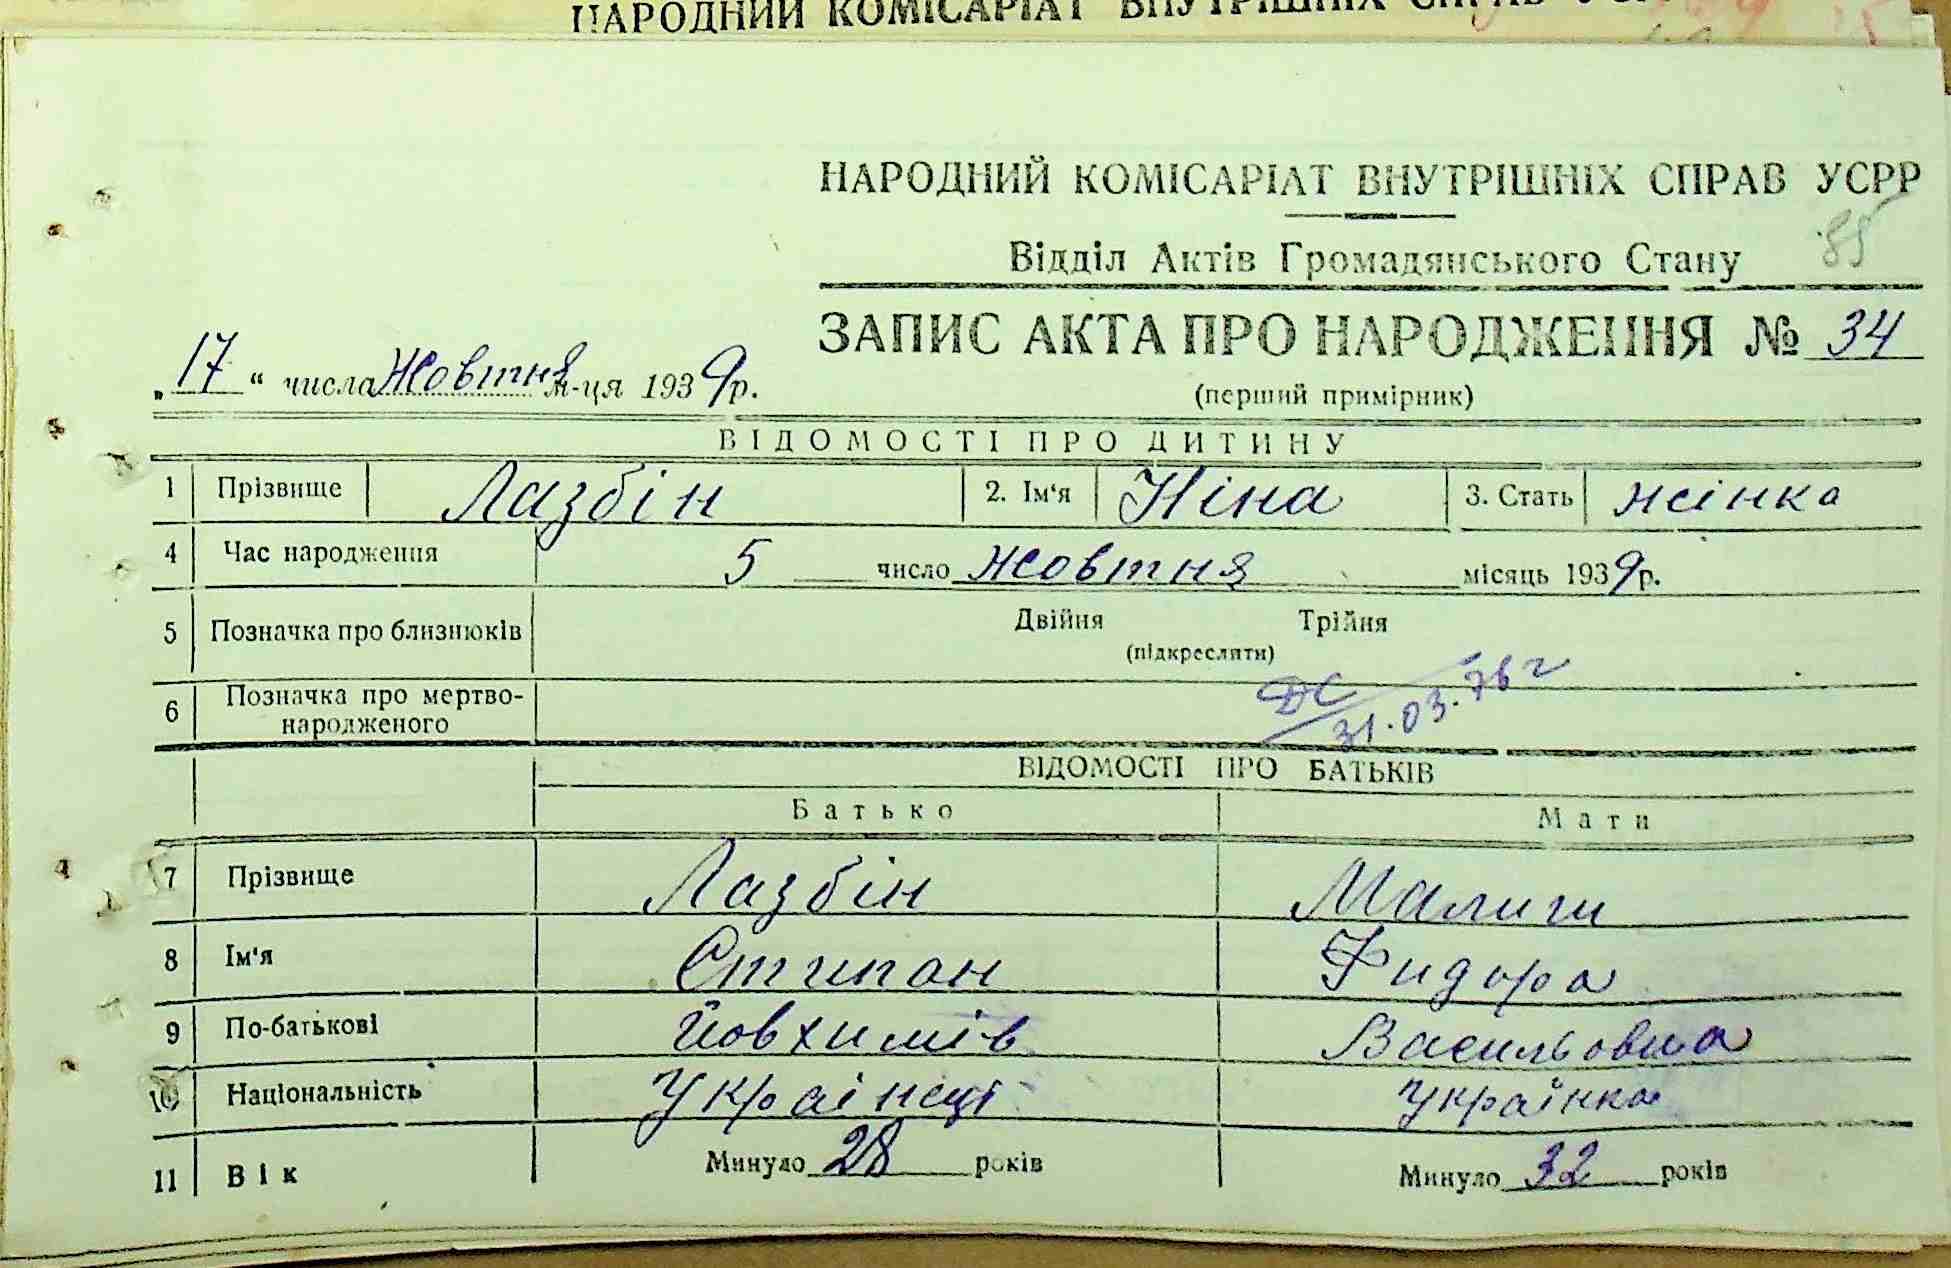 НАРОДНИЙ КОМІСАРІАТ ВНУТРІШНІХ СПРАВ
НАРОДНИЙ КОМІСАРІАТ ВНУТРІШНІХ СПРАВ УСРР
Відділ Актів Громадянського Стану 85
ЗАПИС АКТА ПРО НАРОДЖЕННЯ № 34
„17“ числа Жовтня м-ця 1939р.
(перший примірник)
ВІДОМОСТІ ПРО ДИТИНУ
1 Прізвище Лазбін 2. Ім'я Ніна 3. Стать жінка
4 Час народження 5 число жовтня місяць 1939р.
5 Позначка про близнюків Двійня Трійня
(підкреслити)
6 Позначка про мертво-
народженого
ДС 31.03.76 г
ВІДОМОСТІ ПРО БАТЬКІВ
Батько Мати
7 Прізвище Лазбін
8 Ім'я Стипан Фидора
9 По-батькові Йовхимів Васильовна
10 Національність Українці Українка
11 Вік Минуло 28 років Минуло 32 років